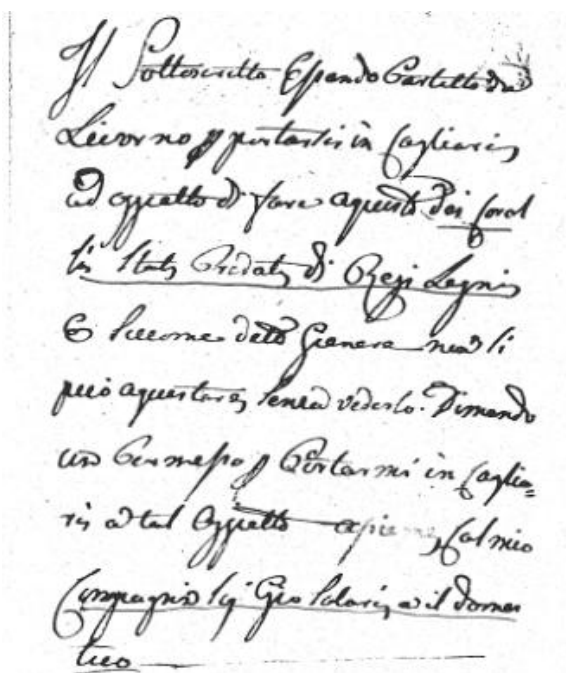 Il Sottoscritto Essendo Partitto da
Livorno p portarsi in Cagliari
ad oggietto di fare aquisto dei Coral
li Stati Predati di Regi Legni
E siccome detto Genere non si
può aquistare senza vederlo. Dimando
un Permesso p Portarmi in Caglia=
ri a tal Oggietto asieme, Col mio
Compagnio Sig Gio Solari e il domes
tico